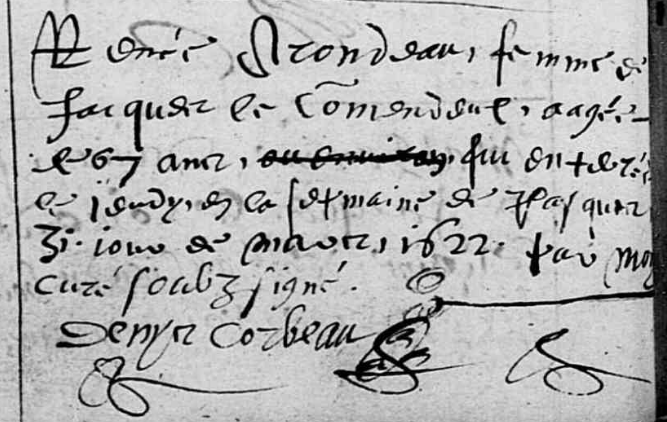 Renée Grondeau, femme de
Jacques le Comendeux, aagée
de 67 ans, ou environ, fut enterée
le jeudy, en la sepmaine de Pasques
31. jour de mars, 1622. par moy
curé soubzsigné.
Denys Corbeau